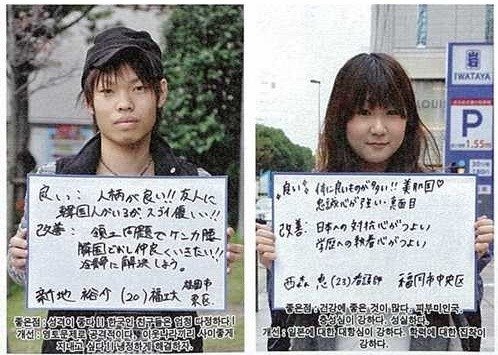 良い： 人柄が良い!! 友人に
韓国人がいるがスゴイ優しい!!
改善： 領土問題でケンカ腰
隣国どうし仲良くいきたい!!
冷静に解決しよう。
新地 裕介 (20) 福工大 福岡市
東区
좋은점 : 성격이 좋다!! 한국인 친구들은 엄청 다정하다!
개선 : 영토문제로 공격적이다. 이웃나라끼리 사이좋게
지내고 싶다! 냉정하게 해결하자.
岩
IWATAYA
LOUIS
P
1.55m
良い： 体に良いものが多い!! 美肌国♡
忠誠心が強い・真面目
改善： 日本への対抗心がつよい
学歴への執着心がつよい
西森 恵 (23) 看護師 福岡市中央区
좋은점 : 건강에 좋은 것이 많다. 피부미인국
충성심이 강하다. 성실하다.
개선 : 일본에 대한 대항심이 강하다. 학력에 대한 집착이
강하다.